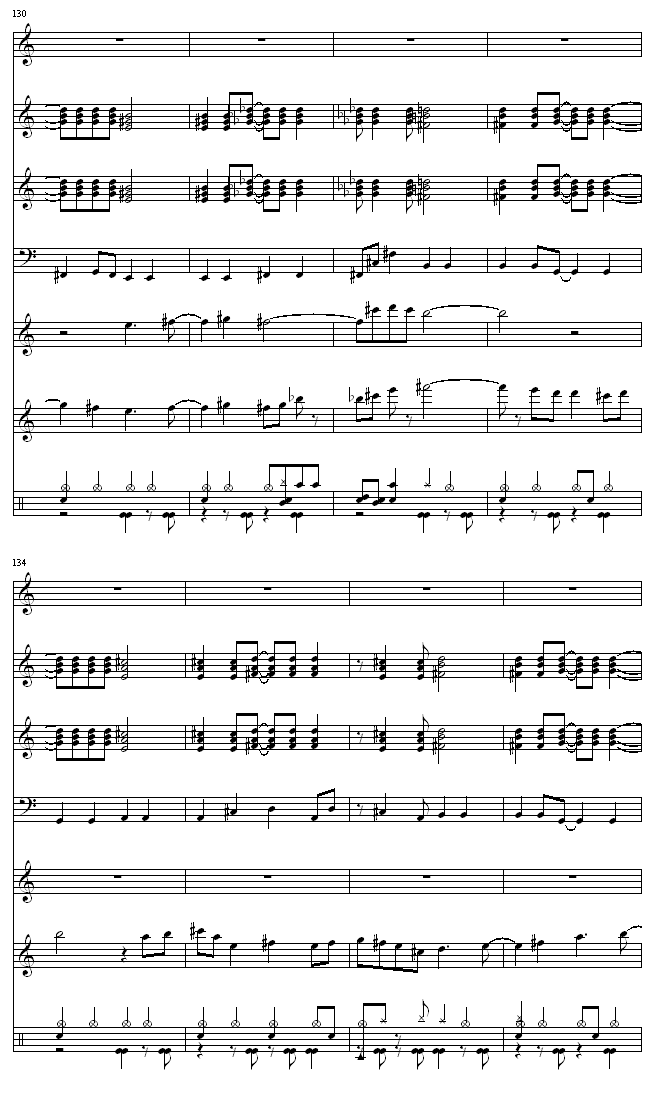 130
134